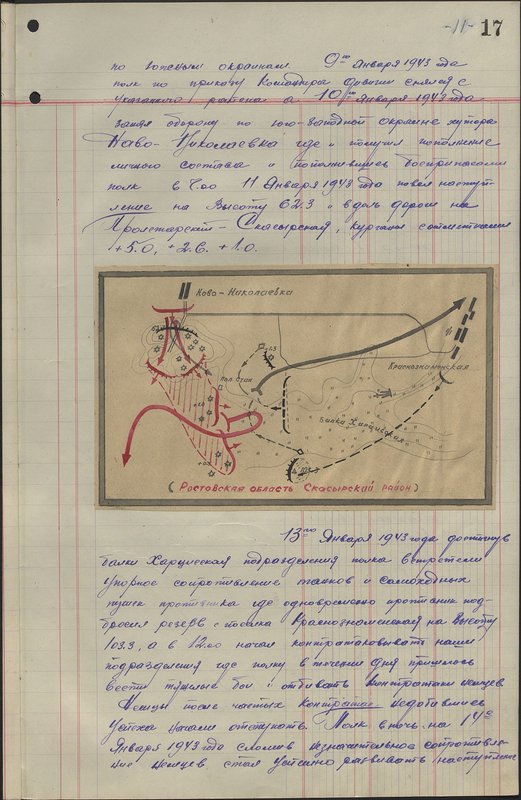 -11- 17
по южным окраинам 9го Января 1943 года
полк по приказу Командира дивизии снялся с
указанного района а 10го Января 1943 года
занял оборону по юго-западной окраине хутора
Ново-Николаевка где и получил пополнение
личного состава и пополнившись боеприпасами
полк в 7.00 11 Января 1943 года повел наступ-
ление на Высоту 62.3 и вдоль дороги на
Пролетарский - Скасырская, курганы с отметками
+5.0, +2.6. +1.0.
Ново-Николаевка
Краснознаменская
Пол. стан
Балка Харцизская
(Ростовская область Скасырский район)
13го Января 1943 года достигнув
балки Харцисская подразделения полка встретели
упорное сопротивление танков и самоходных
пушек противника где одновременно противник под-
бросил резерв с поселка Краснознаменская на Высоту
103.3, а в 12.00 начал контратаковывать наши
подразделения где полку в течении дня пришлось
вести тяжелые бои и отбивать контратаки немцев.
Немцы после частых контратак недобившись
успеха начали отступать. Полк в ночь на 14е
Января 1943 года сломив незначительное сопротивле-
ние немцев стал успешно развивать наступление